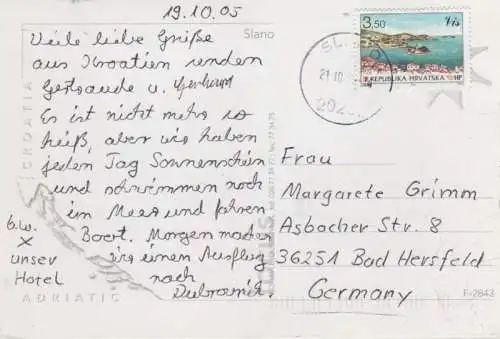 19.10.05
Slano
Viele liebe Grüße
aus Kroatien senden
Gertraude u. Gerhard
Es ist nicht mehr so
heiß, aber wir haben
jeden Tag Sonnenschein
und schwimmen noch
im Meer und fahren
Boot. Morgen machen
wir einen Ausflug
nach
Dubrovnik.
b.w.
X
unser
Hotel
CROATIA
ADRIATIC
3,50
Vis
REPUBLIKA HRVATSKA HP
SL
21 10
202
Frau
Margarete Grimm
Asbacher Str. 8
36251 Bad Hersfeld
Germany
F-2843